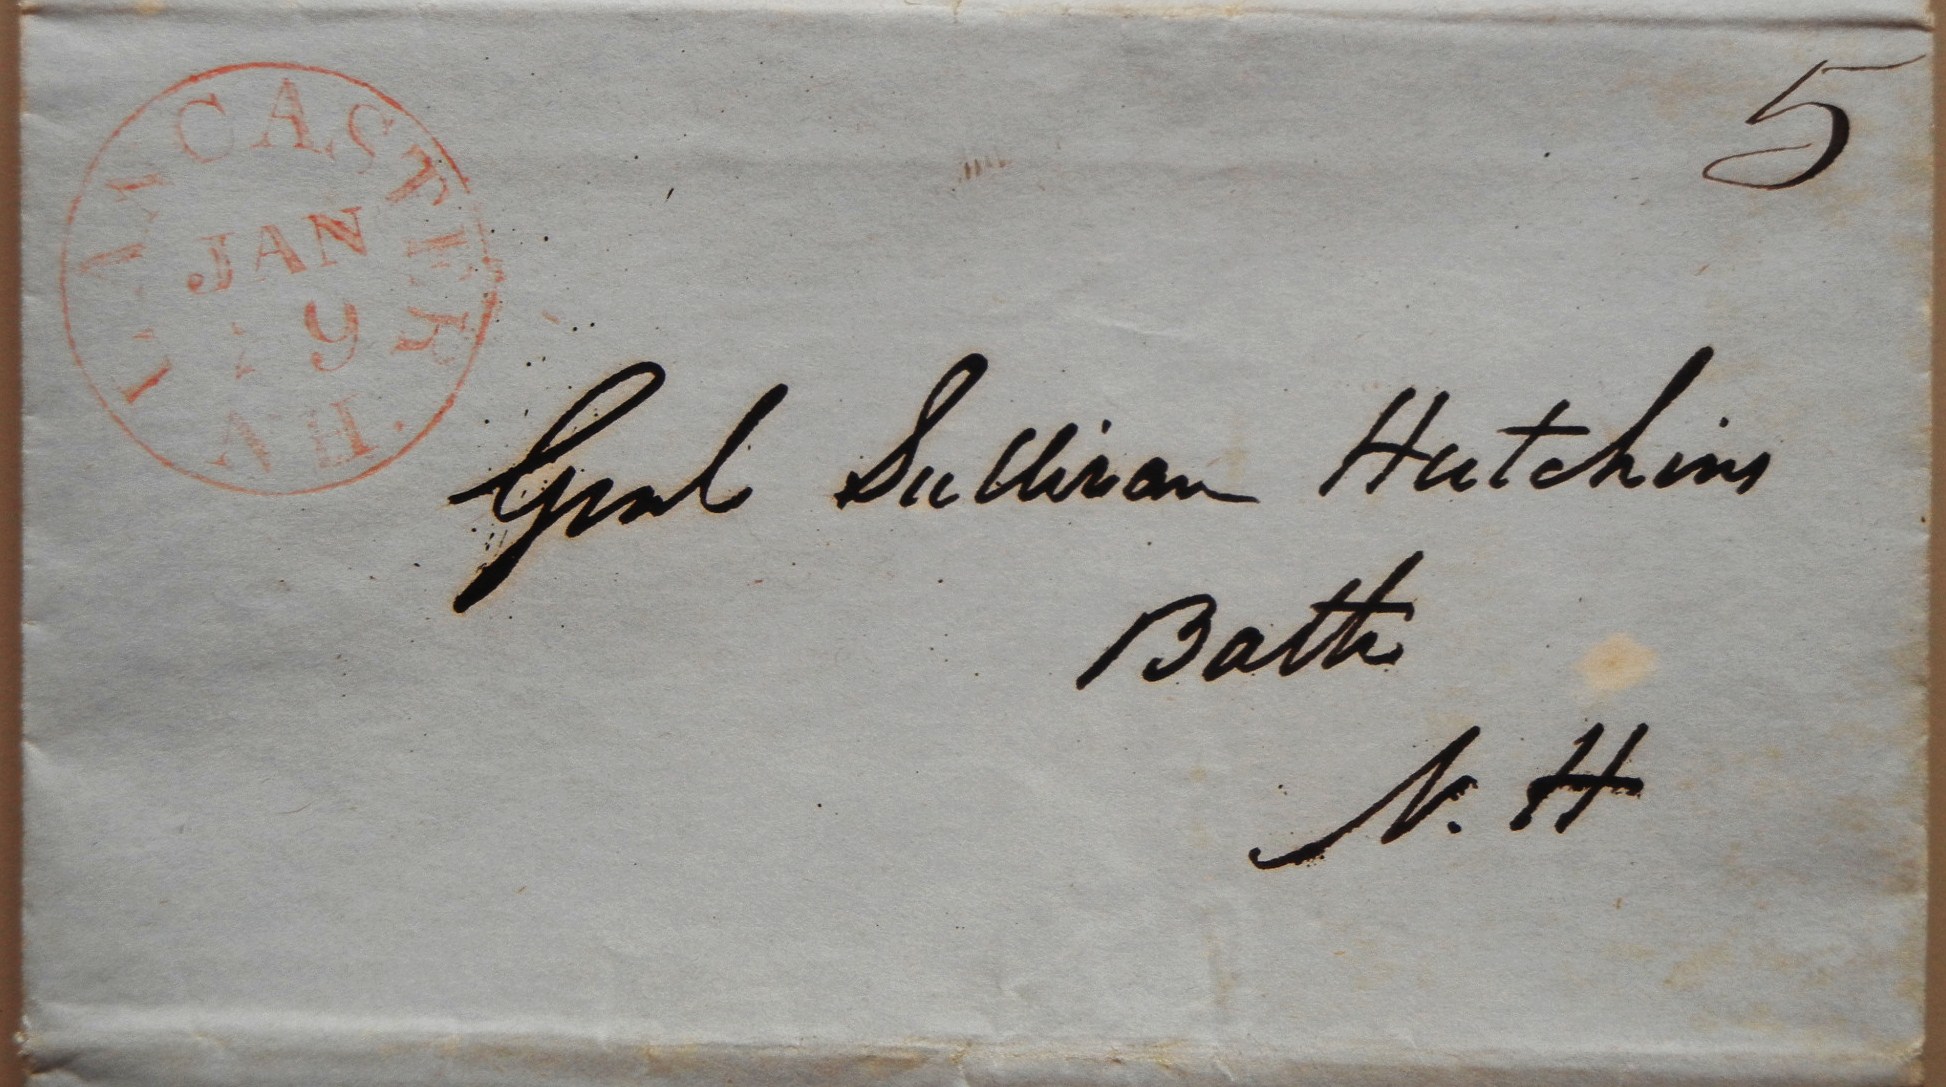 LANCASTER
N.H.
JAN
9
5
Genl Sullivan Hutchins
Bath
N. H